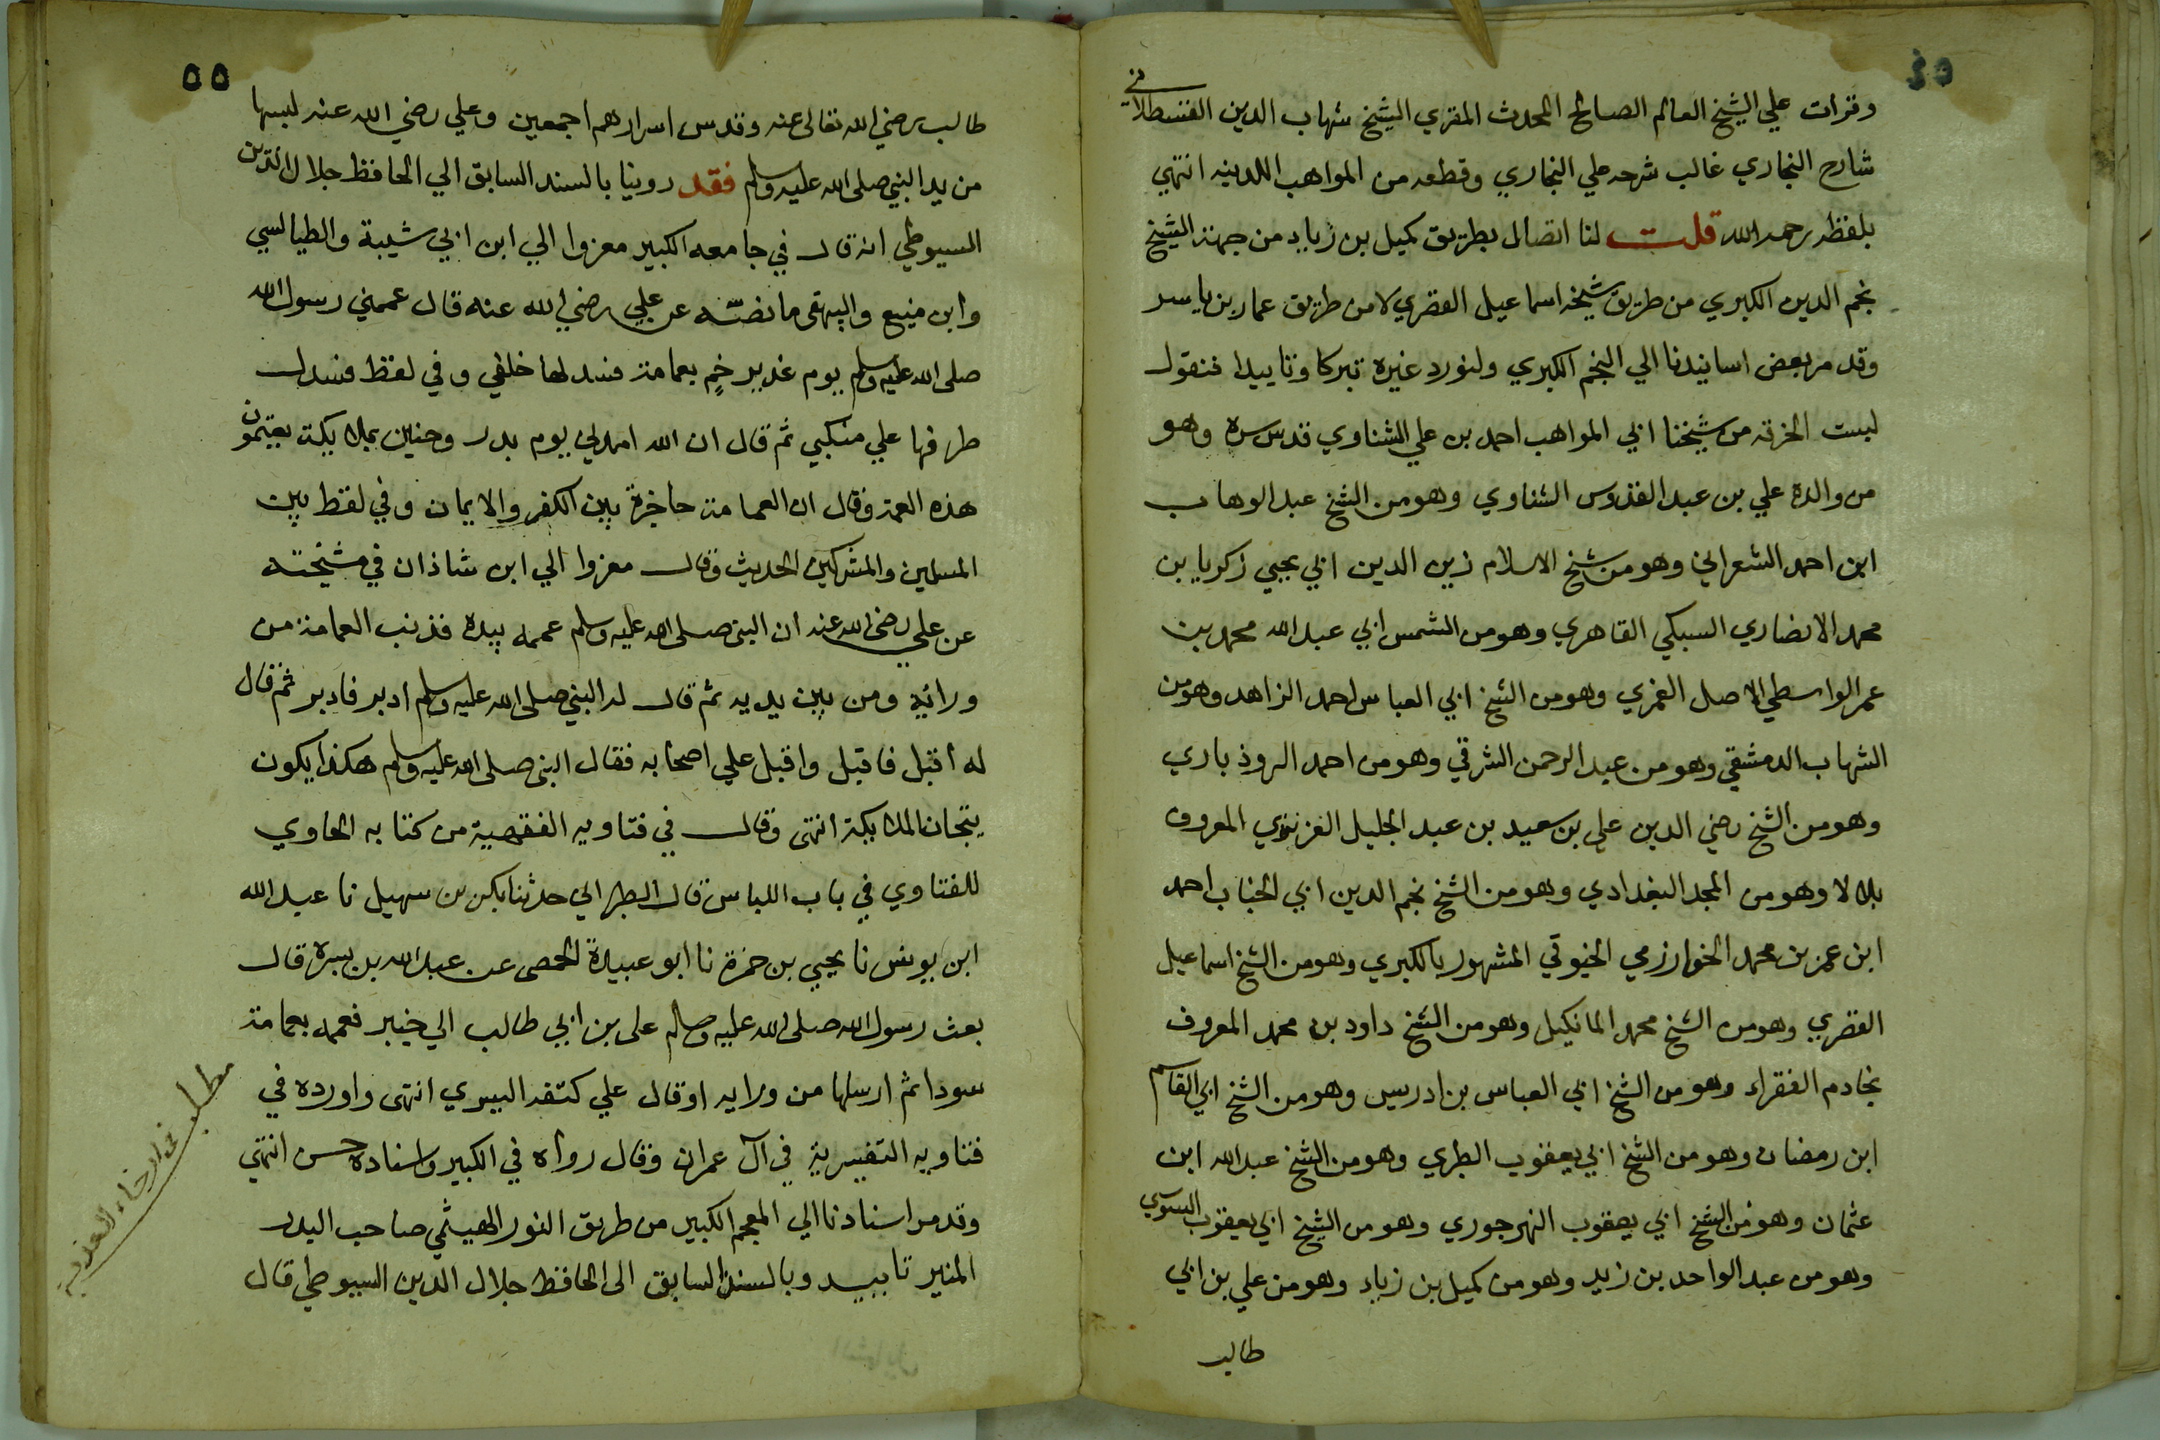 ٥٤
وقرات علي الشيخ العالم الصالح المحدث المقري الشيخ شهاب الدين القسطلاني
شارح البخاري غالب شرحه علي البخاري وقطعه من المواهب اللدنيه انتهي
بلفظه رحمه الله قلت لنا اتصال بطريق كميل بن زياد من جهة الشيخ
نجم الدين الكبري من طريق شيخه اسماعيل القصري لا من طريق عمار بن ياسر
وقد مر بعض اسانيدنا الي النجم الكبري ولنورد غيره تبركا وتاييدا فنقول
لبست الخرقه من شيخنا ابي المواهب احمد بن علي الشناوي قدس سره وهو
من والده علي بن عبد القدوس الشناوي وهو من الشيخ عبد الوهاب
ابن احمد الشعراني وهو من شيخ الاسلام زين الدين ابي يحيي زكريا بن
محمد الانصاري السبكي القاهري وهو من الشمس ابي عبد الله محمد بن
عمر الواسطي الاصل الغمري وهو من الشيخ ابي العباس احمد الزاهد وهو من
الشهاب الدمشقي وهو من عبد الرحمن الشرقي وهو من احمد الروذباري
وهو من الشيخ رضي الدين علي بن سعيد بن عبد الجليل الغزنوي المعروف
بلالا وهو من المجد البغدادي وهو من الشيخ نجم الدين ابي الجناب احمد
ابن عمر بن محمد الخوارزمي الخيوقي المشهور بالكبري وهو من الشيخ اسماعيل
القصري وهو من الشيخ محمد المانكيل وهو من الشيخ داود بن محمد المعروف
بخادم الفقراء وهو من الشيخ ابي العباس بن ادريس وهو من الشيخ ابي القاسم
ابن رمضان وهو من الشيخ ابي يعقوب الطبري وهو من الشيخ عبد الله ابن
عثمان وهو من الشيخ ابي يعقوب النهرجوري وهو من الشيخ ابي يعقوب السوسي
وهو من عبد الواحد بن زيد وهو من كميل بن زياد وهو من علي بن ابي
طالب
٥٥
طالب رضي الله تعالى عنه وقدس اسرارهم اجمعين وعلي رضي الله عنه لبسها
من يد النبي صلى الله عليه وسلم فقد روينا بالسند السابق الي الحافظ جلال الدين
السيوطي انه قال في جامعه الكبير معزوا الي ابن ابي شيبة والطيالسي
وابن منيع والبيهقي ما نصّه عن علي رضي الله عنه قال عممني رسول الله
صلى الله عليه وسلم يوم غدير خم بعمامة فسدلها خلفي وفي لفظ فسدل
طرفها علي منكبي ثم قال ان الله امدني يوم بدر وحنين بملايكة يعتمون
هذه العمة وقال ان العمامة حاجزة بين الكفر والايمان وفي لفظ بين
المسلمين والمشركين الحديث وقال معزوا الي ابن شاذان في مشيخته
عن علي رضي الله عنه ان النبي صلى الله عليه وسلم عممه بيده فذنب العمامة من
ورائه ومن بين يديه ثم قال له النبي صلى الله عليه وسلم ادبر فادبر ثم قال
له اقبل فاقبل واقبل علي اصحابه فقال النبي صلى الله عليه وسلم هكذا يكون
تيجان الملايكة انتهى وقال في فتاويه الفقهية من كتابه الحاوي
للفتاوي في باب اللباس قال الطبراني حدثنا بكر بن سهيل نا عبد الله
ابن يوسف نا يحيي بن حمزة نا ابو عبيدة الحمصي عن عبد الله بن بسرة قال
بعث رسول الله صلى الله عليه وسلم على بن ابي طالب الي خيبر فعممه بعمامة
سودا ثم ارسلها من ورايه او قال علي كتفه اليسري انتهى واورده في
فتاويه التفسيرية في آل عمران وقال رواه في الكبير واسناده حسن انتهي
وقد مر اسنادنا الي المعجم الكبير من طريق النور الهيثمي صاحب البدر
المنير تاييد وبالسند السابق الى الحافظ جلال الدين السيوطي قال
مطلب في ارخاء العذبه